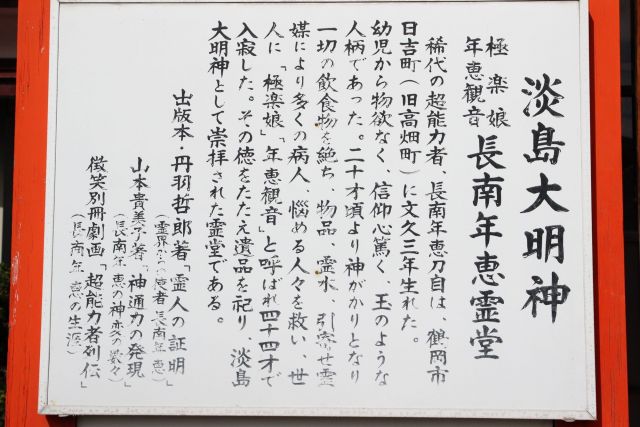 淡島大明神
極楽娘
年恵観音
長南年恵霊堂
稀代の超能力者、長南年恵刀自は、鶴岡市
日吉町(旧高畑町)に文久三年生れた。
幼児から物欲なく、信仰心篤く、玉のような
人柄であった。二十才頃より神がかりとなり
一切の飲食物を絶ち、物品、霊水、引寄せ霊
媒により多くの病人、悩める人々を救い、世
人に「極楽娘」「年恵観音」と呼ばれ四十四才で
入寂した。その徳をたたえ遺品を祀り、淡島
大明神として崇拝された霊堂である。
出版本・丹羽哲郎著「霊人の証明」
(霊界からの使者 長南年恵)
山本貴美子著「神通力の発現」
(長南年恵の神変の数々)
微笑別冊劇画「超能力者列伝」
(長南年恵の生涯)